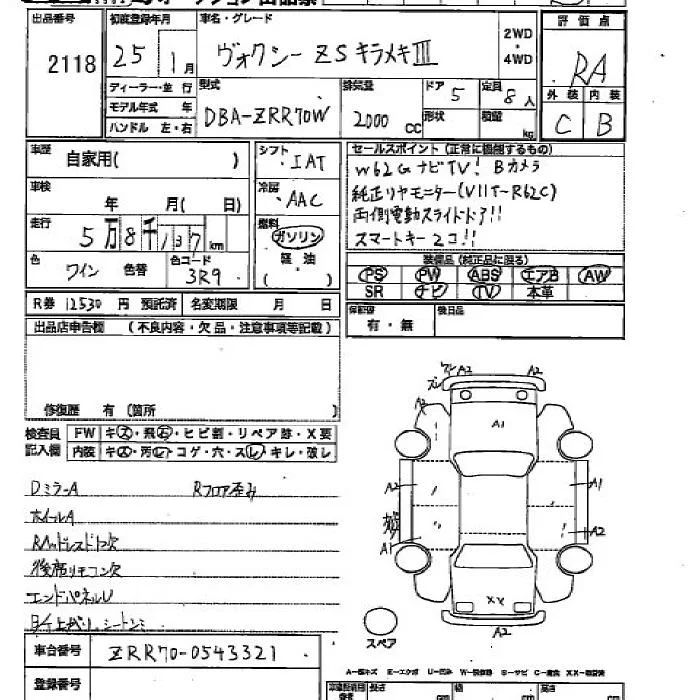 出品番号 初度登録年月 車名・グレード 評価点
2118 25 1月 ヴォクシー ZS キラメキⅢ 2WD・4WD RA
ディーラー・並行 型式 排気量 ドア 5 定員 8人 外装 内装
モデル年式 年 DBA-ZRR70W 2000CC 形状 積載 kg C B
ハンドル 左・右
車歴 自家用( ) シフト IAT セールスポイント(正常に機能するもの)
W62G ナビTV! Bカメラ
車検 年 月( 日) 冷房 AAC 純正リヤモニター(V11T-R62C)
両側電動スライドドア!!
走行 5万8千137km 燃料 ガソリン 軽油 ( ) スマートキー2コ!!
色 ワイン 色替 色コード 3R9 装備品(純正品に限る)
PS PW ABS エアB AW
SR ナビ TV 本革
R券 12530 円 預託済 名変期限 月 日 保証書 有・無 後日品
出品店申告欄 (不良内容・欠品・注意事項等記載)
修復歴 有(箇所 )
検査員記入欄 FW キズ・飛石・ヒビ割・リペア跡・X要
内装 キズ・汚レ・コゲ・穴・スレ・キレ・破レ
A2 A2
A2 A1
A2 A1
A1 A2
XX
A2
スペア
DミラーA Rフロア歪み
ホイールA
後席リモコン欠
エンドパネルU
車台番号 ZRR70-0543321
登録番号
A-傷キズ E-エクボ U-凹み
長さ cm 幅 cm 高さ cm